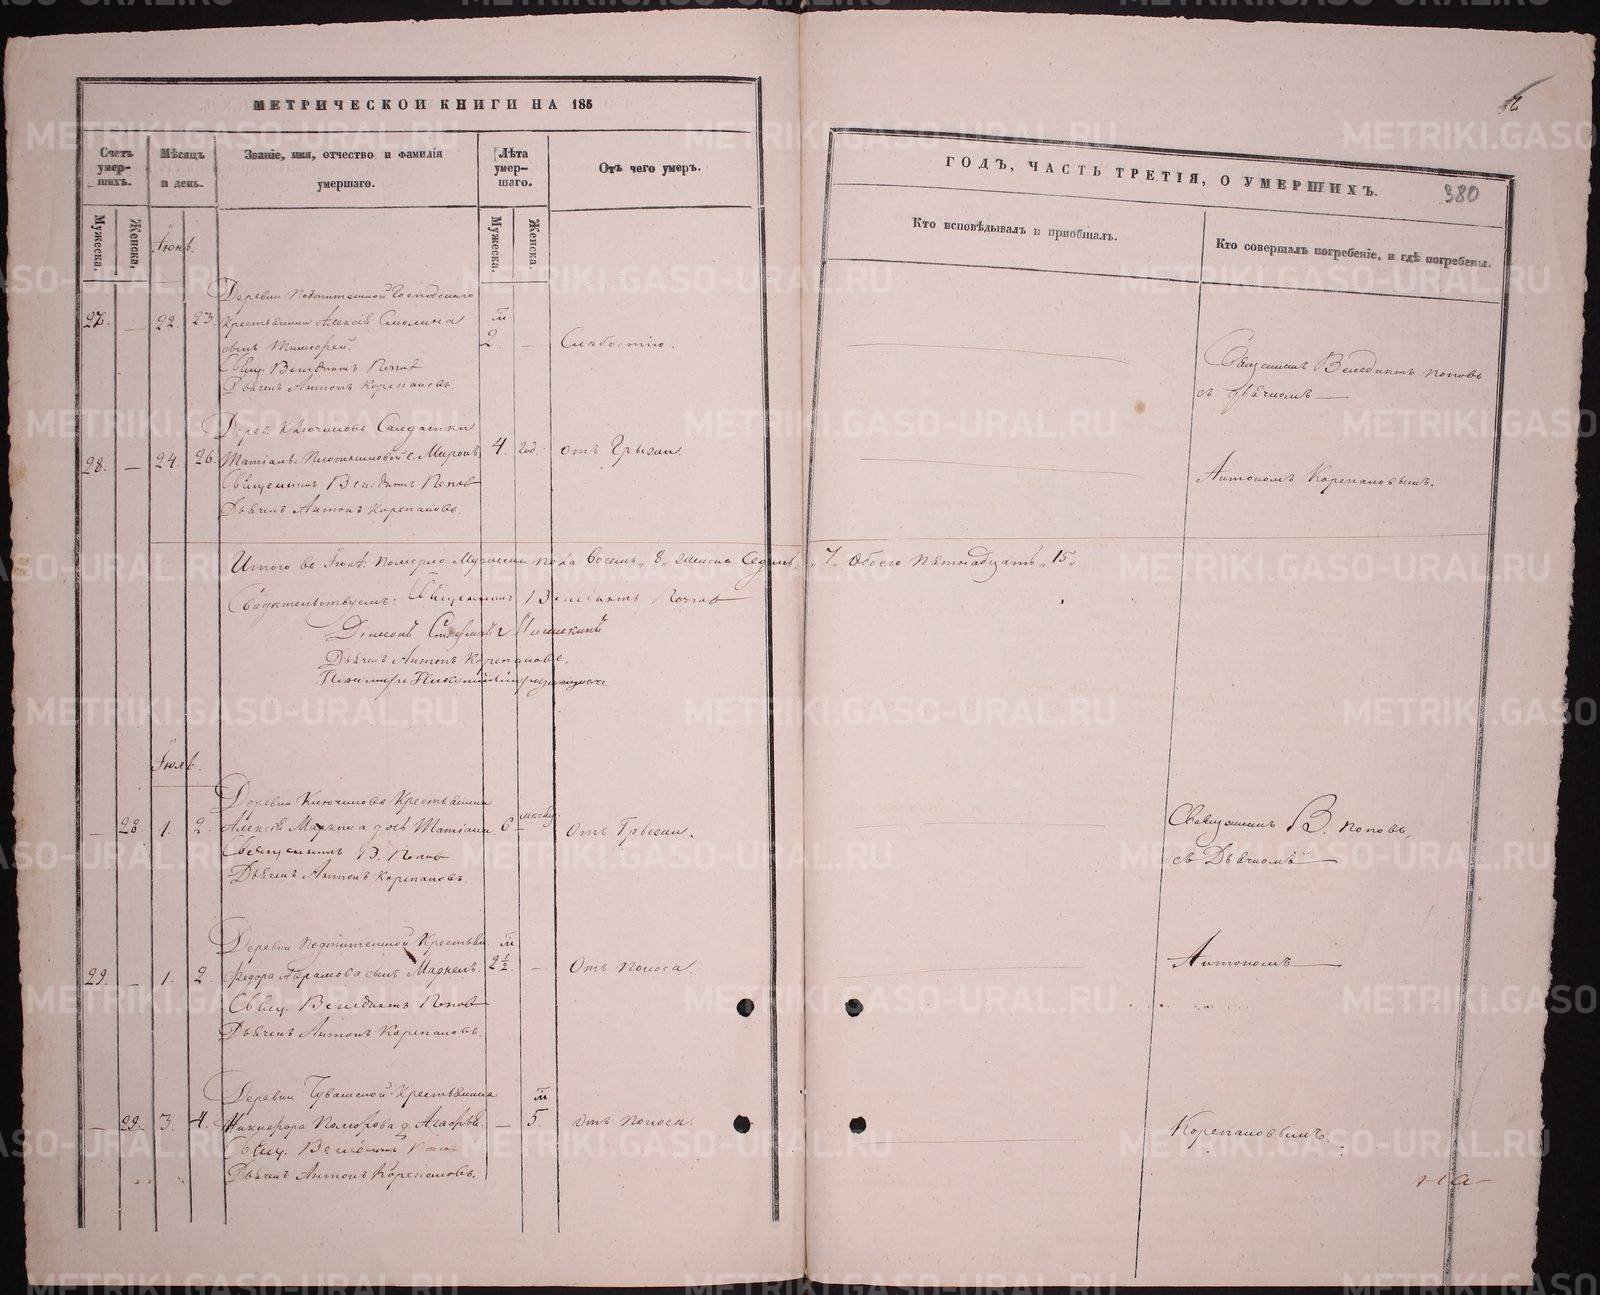 МЕТРИЧЕСКОЙ КНИГИ НА 185
Счетъ умер-шихъ.
Мѣсяцъ и день.
Званіе, имя, отчество и фамилія умершаго.
Лѣта умер-шаго.
Отъ чего умеръ.
Мужеска.
Женска.
Мужеска.
Женска.
Іюнь.
27. — 22. 23.
Деревни Господскаго
крестьянина Алексѣя Смолина
сынъ Тимофей.
2. — Слабостію.
Свящ. Венедиктъ Поповъ
Дьячекъ Антонъ Корепановъ.
28. — 24. 26.
Дерев. Ключиковъ Салдатки
Матіаны с. Миронъ
4. год. отъ Грызи.
Священникъ Венедиктъ Поповъ
Дьячекъ Антонъ Корепановъ.
Итого въ Іюнѣ померло Мужеска пола восемь „8„ женска Седмь „7„ обоего пятнадцать „15„
Свидѣтельствуемъ: Священникъ Венедиктъ Поповъ
Діаконъ
Дьячекъ Антонъ Корепановъ.
Пономарь Николай
Іюль.
— 28. 1. 2.
Деревни Ключиковъ Крестьянина
Алексѣя Маркина дочь Матіана.
6 мѣсяц. Отъ Грызи.
Священникъ В. Поповъ
Дьячекъ Антонъ Корепановъ.
29. — 1. 2.
Деревни Крестьян.
Федора Абрамова сынъ Маркелъ.
2 1/2. — Отъ поноса.
Свящ. Венедиктъ Поповъ
Дьячекъ Антонъ Корепановъ.
— 29. 3. 4.
Деревни Чувашской Крестьянина
Никифора д. Агафья.
— 5. отъ поноса.
Свящ. Венедиктъ Поповъ
Дьячекъ Антонъ Корепановъ.
ГОДЪ, ЧАСТЬ ТРЕТІЯ, О УМЕРШИХЪ.
380
Кто исповѣдывалъ и пріобщалъ.
Кто совершалъ погребеніе, и гдѣ погребены.
Священникъ Венедиктъ Поповъ
съ дьячкомъ
Антономъ Корепановымъ.
Священникъ В. Поповъ,
съ Дьячкомъ
Антономъ
Корепановымъ.
METRIKI.GASO-URAL.RU